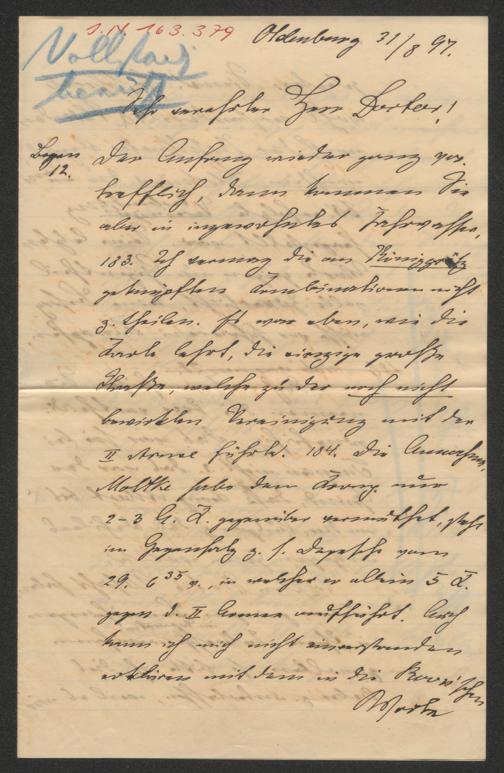 I.N 163.379
Oldenburg 31/8 97.
Vollständig
benützt
Sehr verehrter Herr Doctor!
Bogen
12.
Der Anfang wieder ganz vor-
trefflich, dann kommen Sie
aber in ungewohntes Fahrwasser,
183. Ich vermag die an Königgrätz
geknüpften Combinationen nicht
z. theilen. Es war eben, wie die
Karte lehrt, die einzige große
Straße, welche zu der noch nicht
bewirkten Vereinigung mit der
II Armee führte. 184. Die Annahme,
Moltke habe dem Kronpr. nur
2-3 A. K. gegenüber vermuthet, steht
im Gegensatz z. s. Depesche vom
29. 6 35 v., in welcher er allein 5 K.
gegen d. II Armee aufführt. Auch
kann ich mich nicht einverstanden
erklären mit dem in die schen
Worte